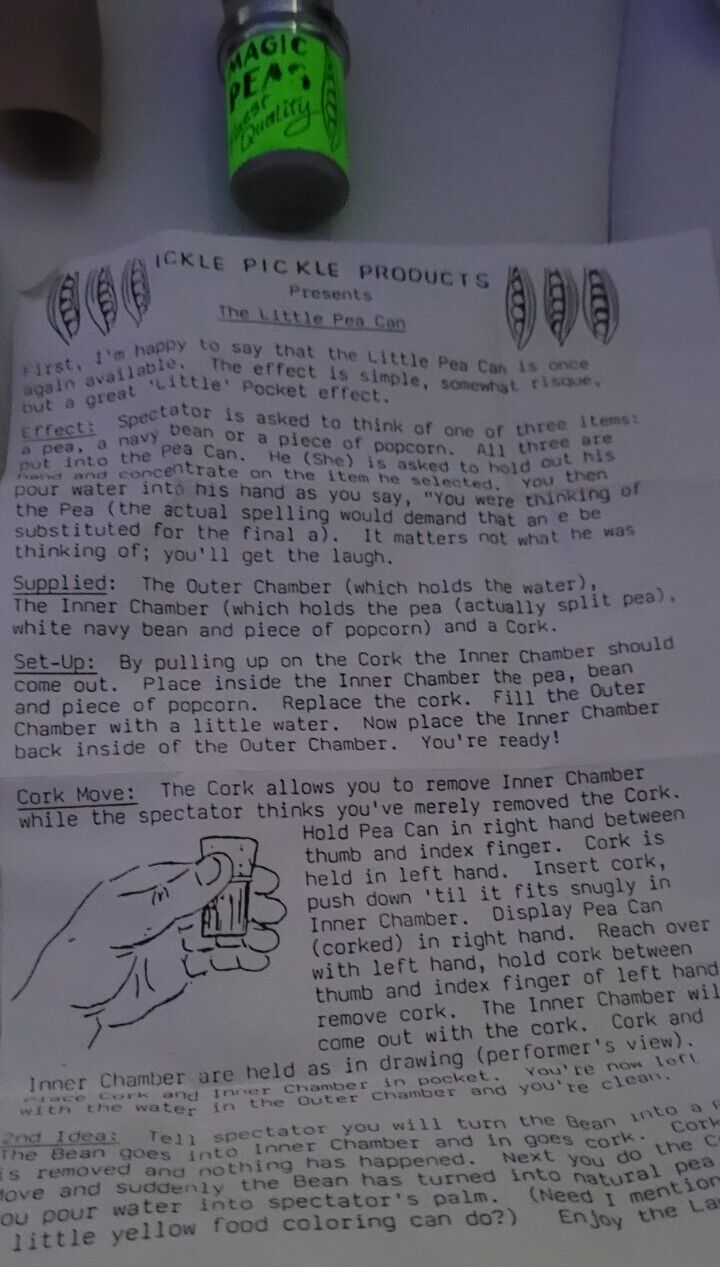 MAGIC
PEAS
Finest
Quality
ICKLE PICKLE PRODUCTS
Presents
The Little Pea Can
First, I'm happy to say that the Little Pea Can is once
again available. The effect is simple, somewhat risque,
but a great 'Little' Pocket effect.
Effect: Spectator is asked to think of one of three items:
a pea, a navy bean or a piece of popcorn. All three are
put into the Pea Can. He (She) is asked to hold out his
hand and concentrate on the item he selected. You then
pour water into his hand as you say, "You were thinking of
the Pea (the actual spelling would demand that an e be
substituted for the final a). It matters not what he was
thinking of; you'll get the laugh.
Supplied: The Outer Chamber (which holds the water),
The Inner Chamber (which holds the pea (actually split pea),
white navy bean and piece of popcorn) and a Cork.
Set-Up: By pulling up on the Cork the Inner Chamber should
come out. Place inside the Inner Chamber the pea, bean
and piece of popcorn. Replace the cork. Fill the Outer
Chamber with a little water. Now place the Inner Chamber
back inside of the Outer Chamber. You're ready!
Cork Move: The Cork allows you to remove Inner Chamber
while the spectator thinks you've merely removed the Cork.
Hold Pea Can in right hand between
thumb and index finger. Cork is
held in left hand. Insert cork,
push down 'til it fits snugly in
Inner Chamber. Display Pea Can
(corked) in right hand. Reach over
with left hand, hold cork between
thumb and index finger of left hand
remove cork. The Inner Chamber wil
come out with the cork. Cork and
Inner Chamber are held as in drawing (performer's view).
Place Cork and Inner Chamber in pocket. You're now left
with the water in the Outer Chamber and you're clean.
2nd Idea: Tell spectator you will turn the Bean into a
The Bean goes into Inner Chamber and in goes cork. Cork
is removed and nothing has happened. Next you do the C
Move and suddenly the Bean has turned into natural pea
ou pour water into spectator's palm. (Need I mention
little yellow food coloring can do?) Enjoy the La